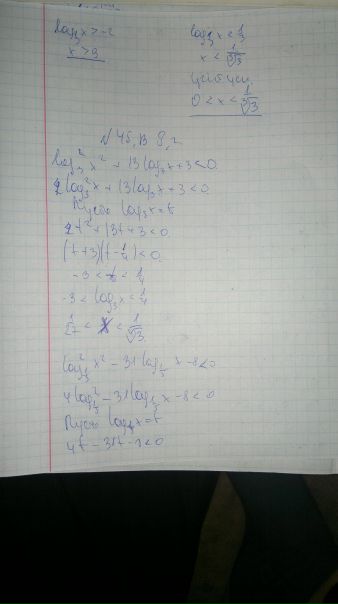 log₃x>-2
x>9
log₃x<1/3
x<1/∛3
0<x<1/∛3
N 45,13 β,г
log₃²x²+13log₃x+3<0
4log₃²x+13log₃x+3<0
Пусть log₃x=t
4t²+13t+3<0
(t+3)(t-1/4)<0
-3<t<1/4
-3<log₃x<1/4
1/27<x<1/∜3
log²x²-31log x-8<0
4log²-31log x-8<0
Пусть log x=t
4t-31t-8<0